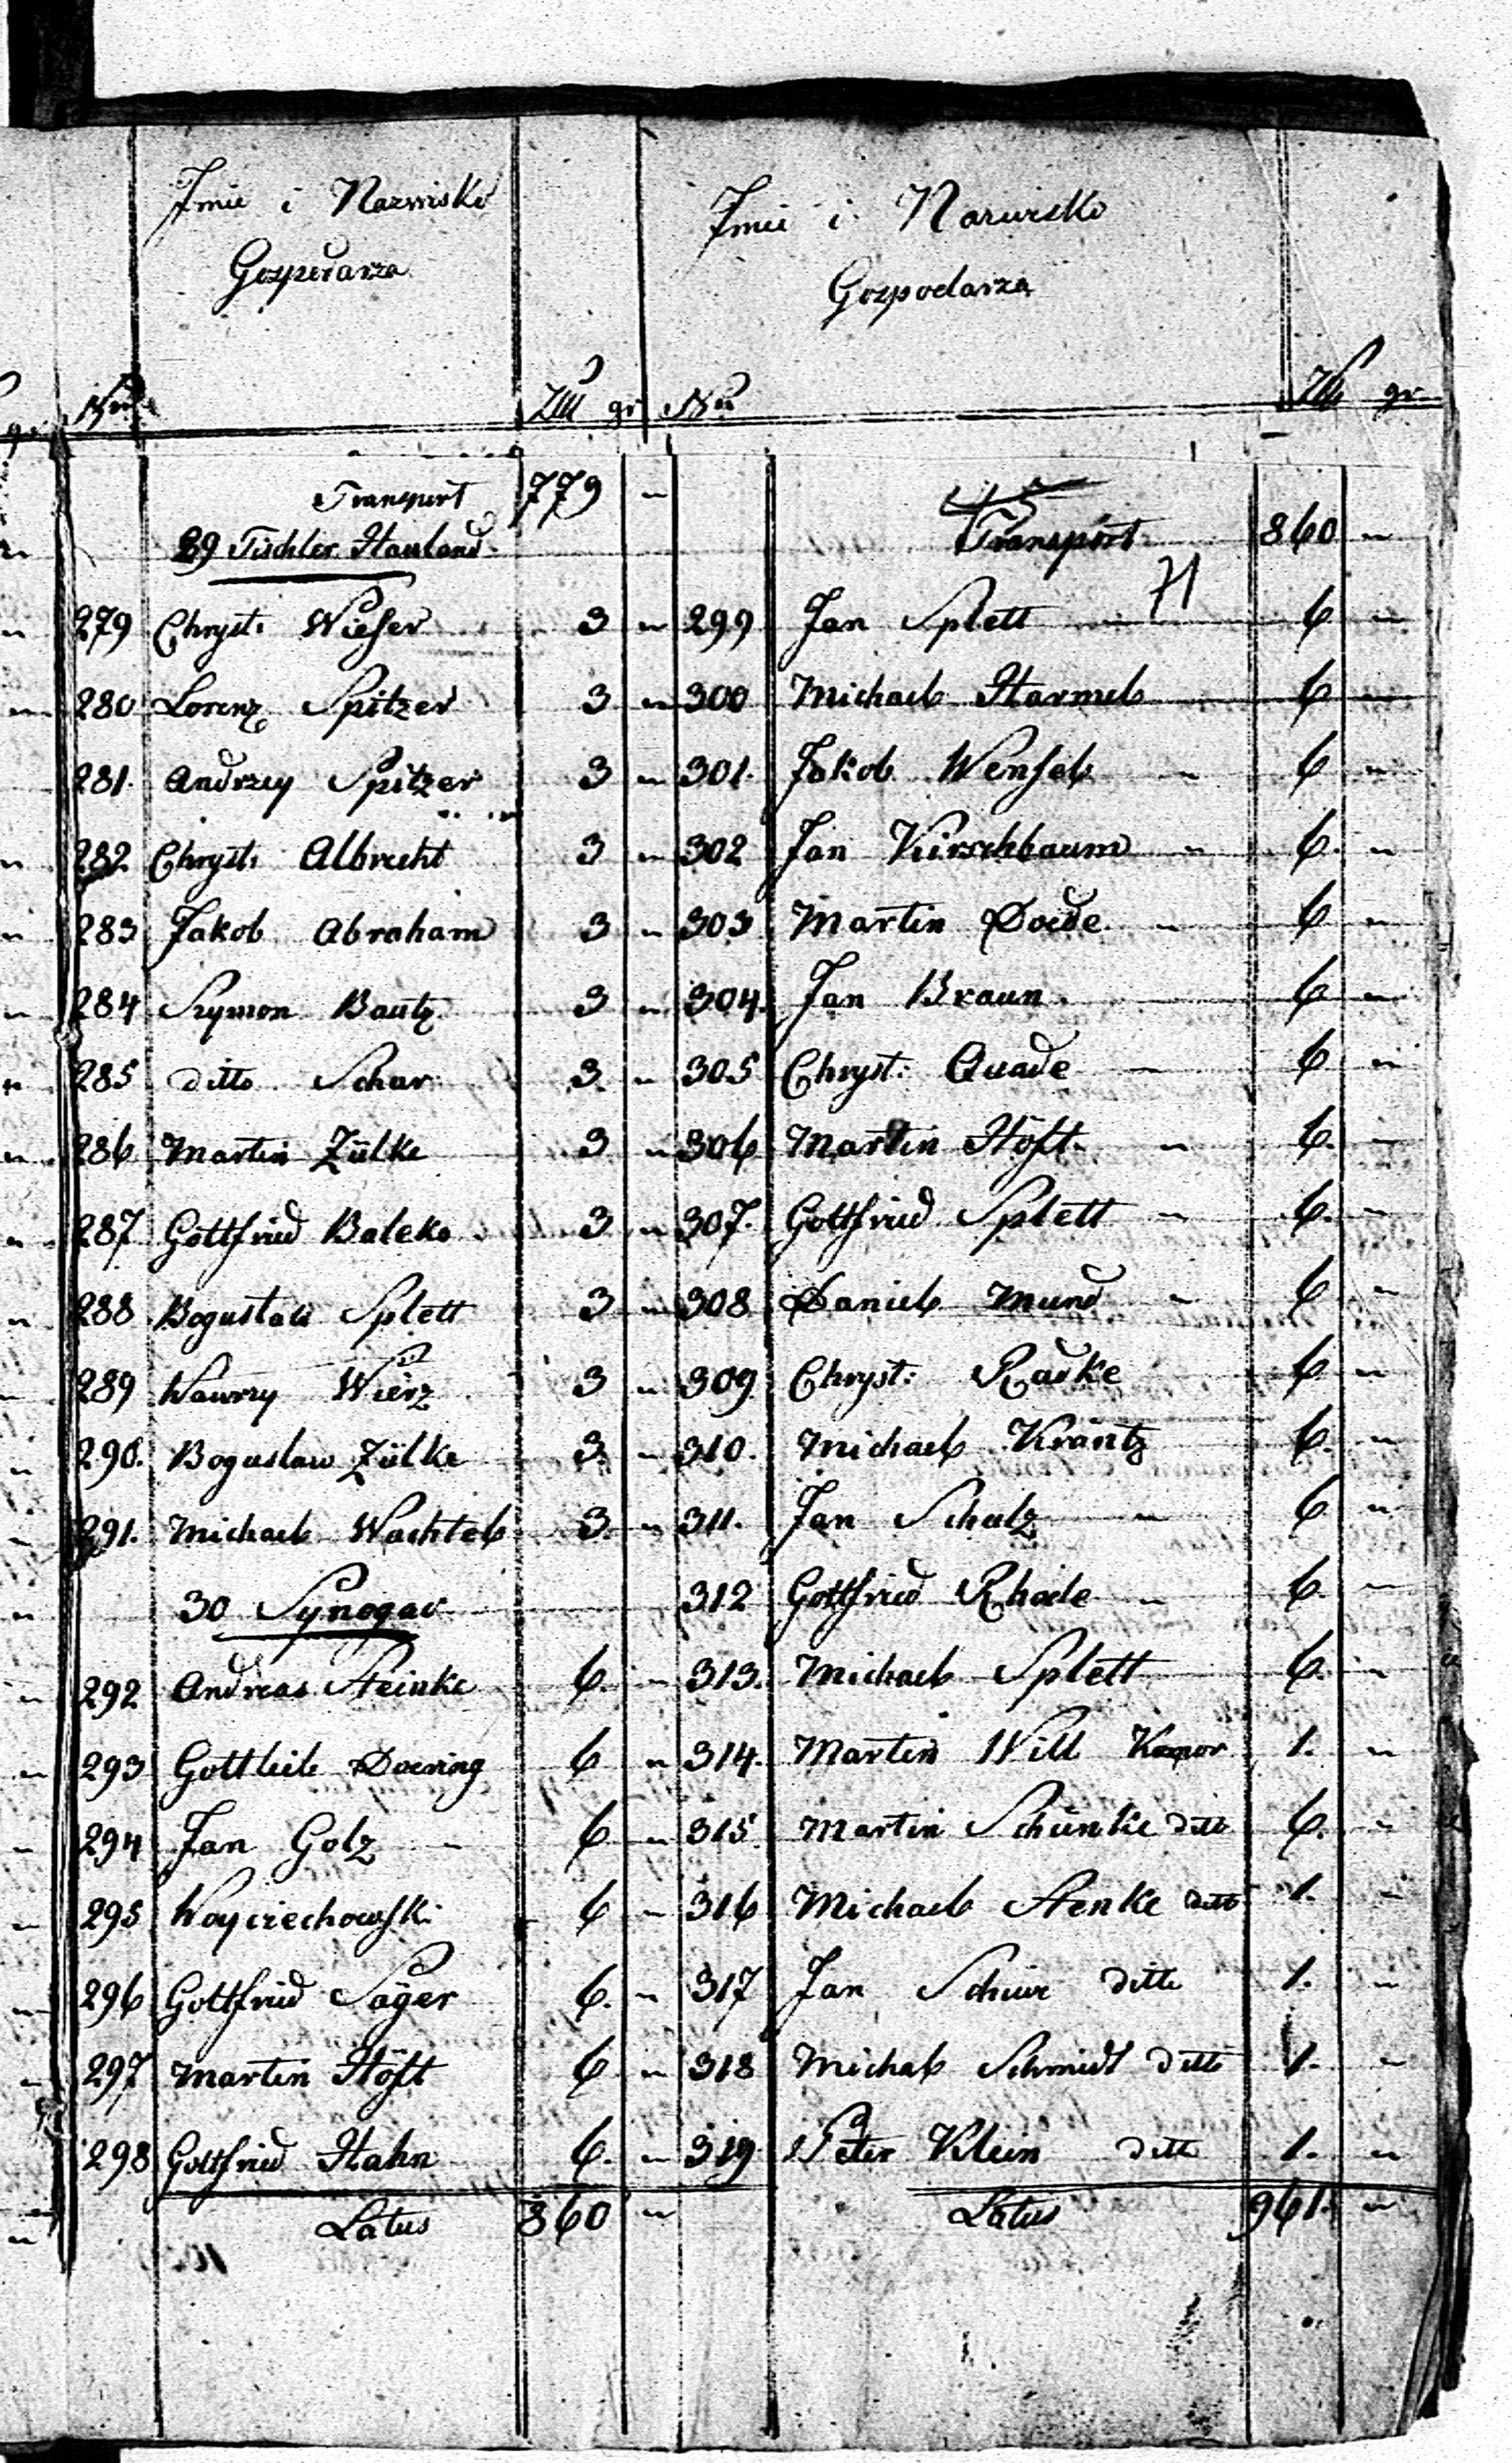 Imie i Nazwisko
Gospodarza
Nr
Złł gr
Transport 779 "
29 Tischler Hauland
279 Chryst: Wieser 3 "
280 Lorenz Spitzer 3 "
281. Andrzey Spitzer 3 "
282 Chryst: Albrecht 3 "
283 Jakob Abraham 3 "
284 Szymon Bautz 3 "
285 ditto Schar 3. "
286 Martin Zülke 3 "
287 Gottfried Baleke 3 "
288 Bogusław Splett 3 "
289 Wawrzy Wierz 3 "
290. Bogusław Zülke 3. "
291. Michael Wachtel 3. "
30 Synogac
292 Andreas Steinke 6. "
293 Gottlieb Doering 6 "
294 Jan Golz " 6 "
295 Woyciechowski 6 "
296 Gottfried Säger 6. "
297 Martin Höft 6 "
298 Gottfried Hahn 6. "
Latus 860 "
Imie i Nazwisko
Gospodarza
Nr
Złł gr
Transport 860 "
71
299 Jan Splett 6 "
300 Michael Harmel 6 "
301. Jakob Wensel " 6 "
302 Jan Kirschbaum " 6. "
303 Martin Doede " 6 "
304. Jan Braun 6 "
305 Chryst: Quade " 6 "
306 Martin Höft " 6. "
307. Gottfried Splett " 6. "
308 Daniel Mund " 6 "
309 Chryst: Radke 6 "
310. Michael Krantz 6. "
311. Jan Schulz " 6 "
312 Gottfried Rhode " 6. "
313. Michael Splett 6. "
314. Martin Will Komor 1. "
315. Martin Schünke ditto 6. "
316 Michael Stenke ditto 1. "
317 Jan ditto 1. "
318 Michael Schmidt ditto 1. "
319 Peter Klein ditto 1. "
Latus 961. "